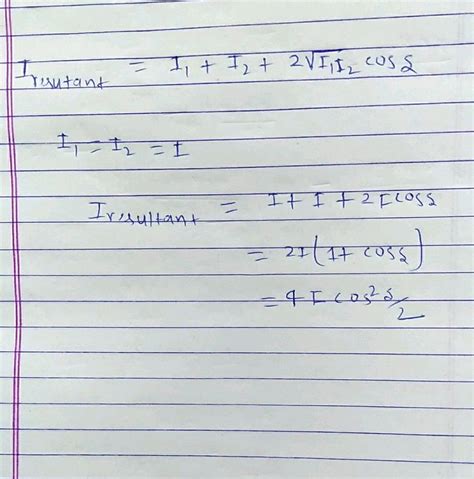 I resutant = I₁ + I₂ + 2√I₁I₂ cos δ
I₁ = I₂ = I
I resultant = I + I + 2I cos δ
= 2I (1 + cos δ)
= 4 I cos² δ/2